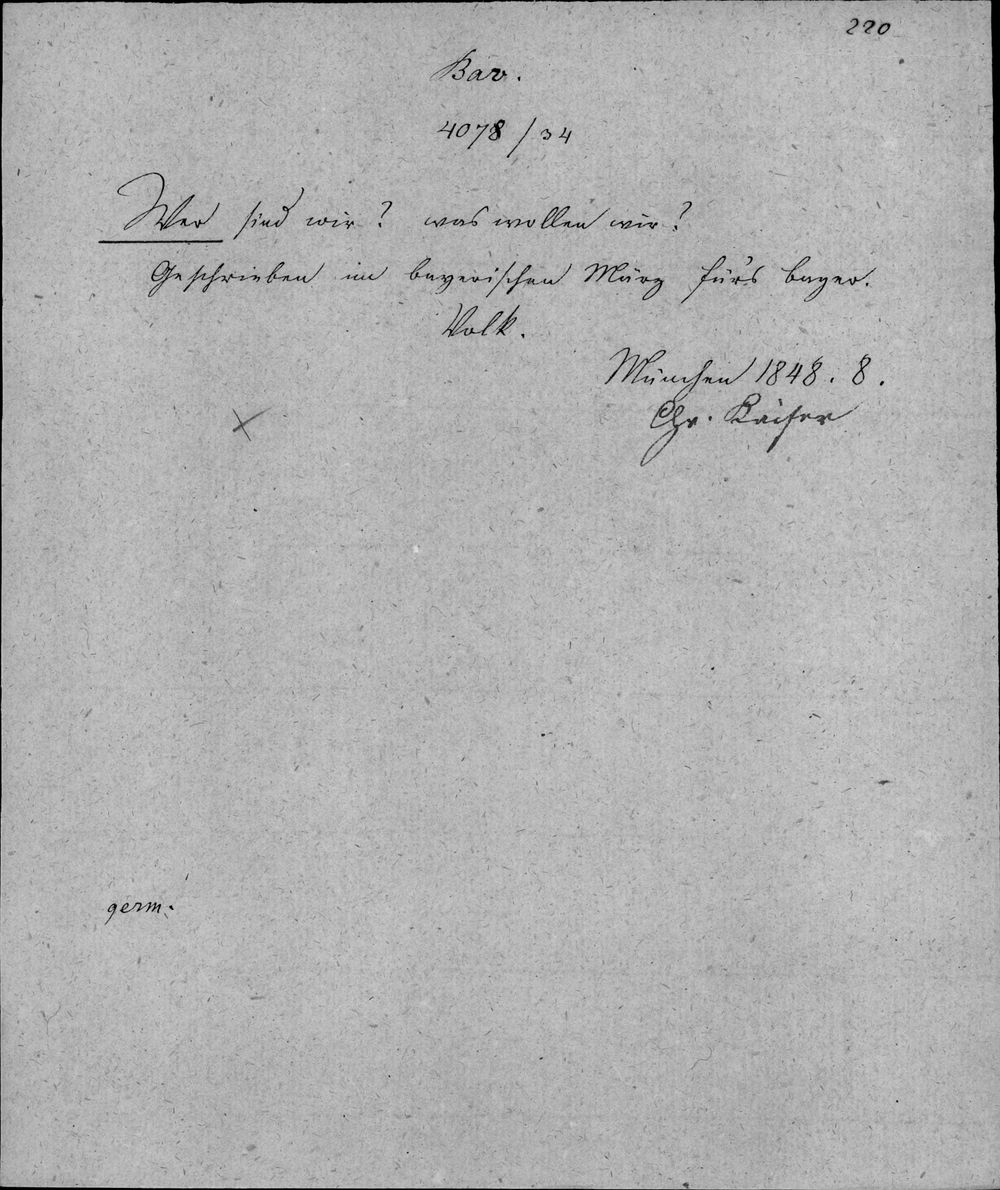 220
Bav.
4078/34
Wer sind wir? was wollen wir?
Geschrieben im bayerischen März für's bayer.
Volk.
München 1848. 8.
Chr. Kaiser
germ.